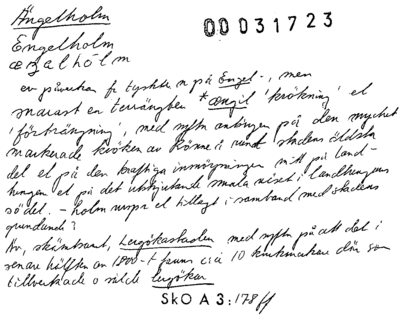 Ängelholm
00031723
Engelholm
ængalhólm
ev påverkan fr tyskt n på Engel-, men
snarast en terrängben *ængil 'krökning' el
'förträngning', med syftn antingen på den mycket
markerade kröken av Rönneå runt stadens äldsta
del el på den kraftiga insvängningen mitt på land-
tungen el på det utskjutande smala näset i landtungans
södel. - holm urspr el tillagt i samband med stadens
grundande?
Äv, skämtsamt, Lergökastaden med syftn på att det i
senare hälften av 1800-t fanns c:a 10 krukmakare där som
tillverkade o sålde lergökar
SkO A 3: 178 ff